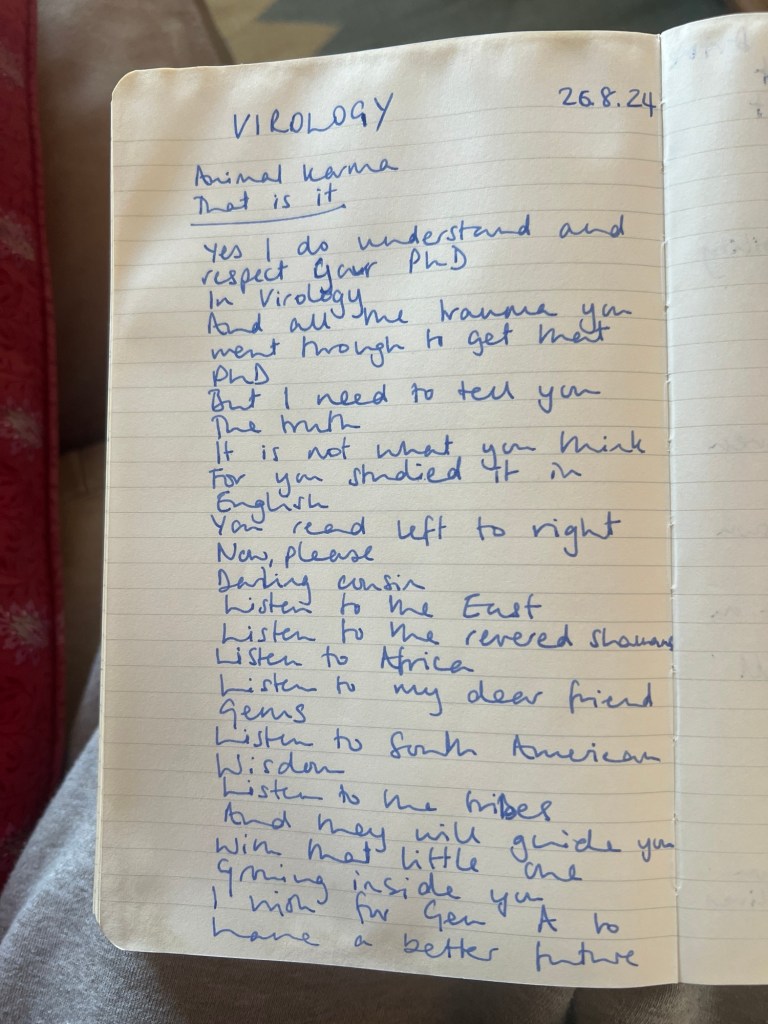 VIROLOGY
26.8.24
Animal Karma
That is it
Yes I do understand and
respect your PhD
In Virology
And all the trauma you
went through to get that
PhD
But I need to tell you
The truth
It is not what you think
For you studied it in
English
You read left to right
Now, please
Darling cousin
Listen to the East
Listen to the revered shamans
Listen to Africa
Listen to my dear friend
Gems
Listen to South American
Wisdom
Listen to the tribes
And they will guide you
With that little one
Growing inside you
I wish for Gen A to
have a better future